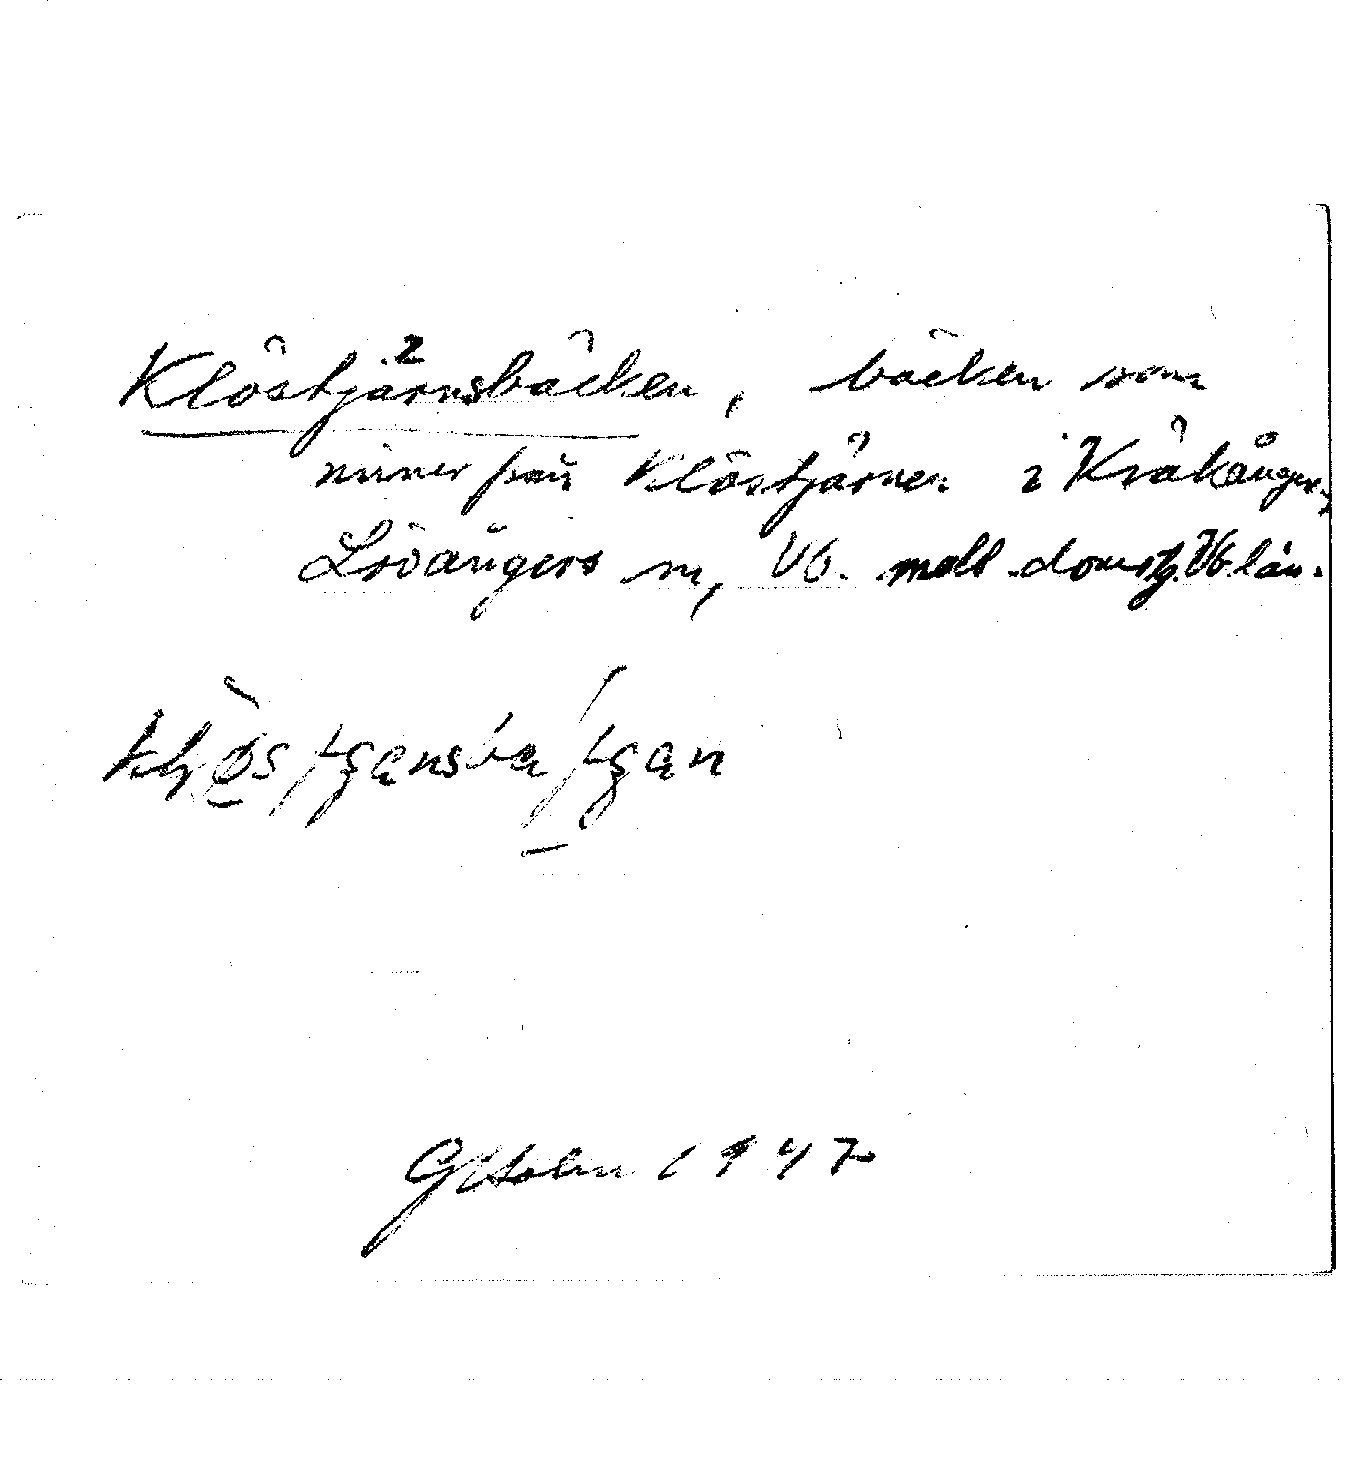 Klöstjärnsbäcken, bäcken som
rinner från Klöstjärnen i Kräkånger,
Lövångers sn, Vb. mell. doms. Vb. län.
GHolm 1947